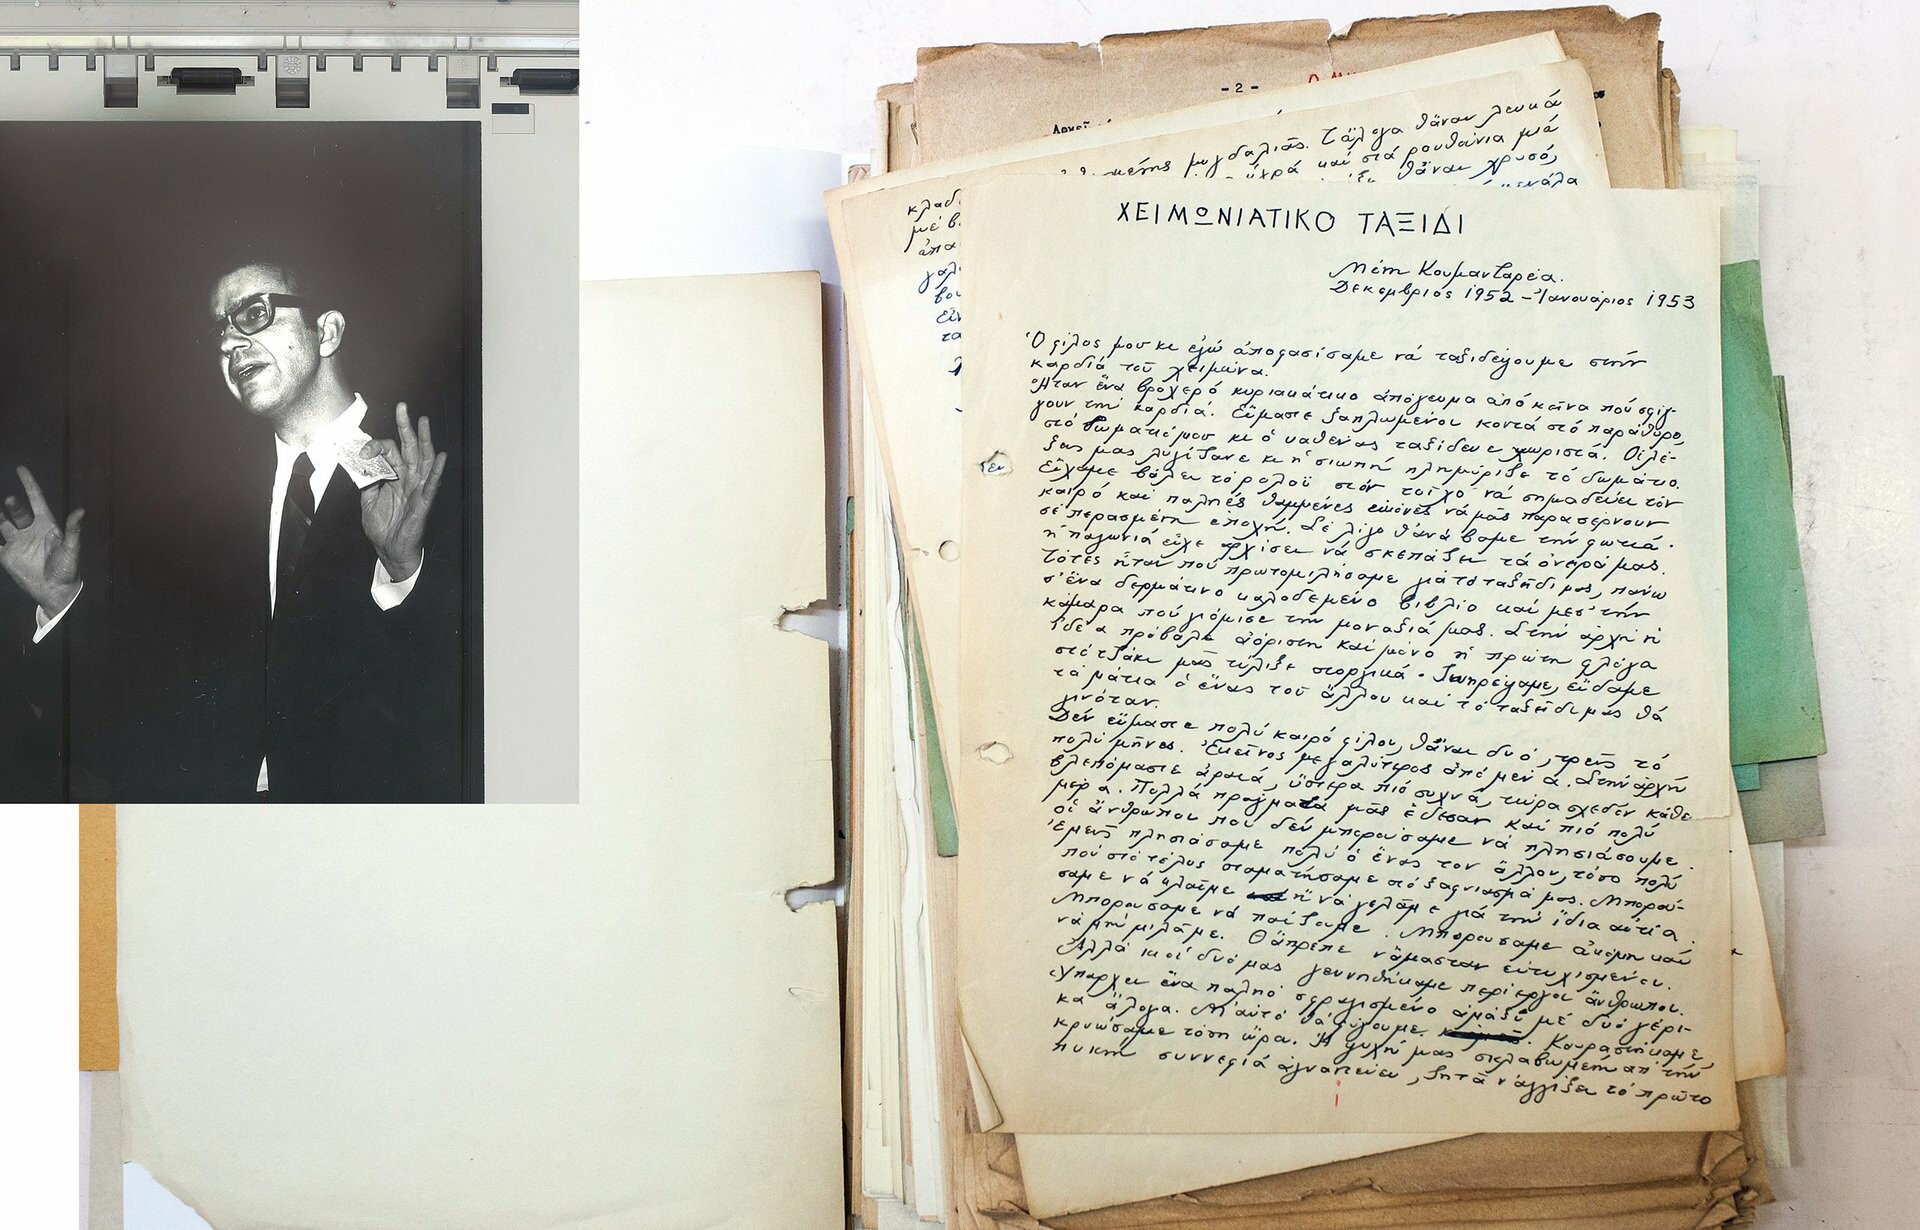 - 2 -
μυγδαλιᾶς. Τἄλογα θἄναι λευκά
ὠχρά καί στά ρουθούνια μιά
θἄναι χρυσό,
κλαδ
μέ β
ἀπα
γαλ
βου
εἶν
τα
ΧΕΙΜΩΝΙΑΤΙΚΟ ΤΑΞΙΔΙ
Μένη Κουμανταρέα.
Δεκέμβριος 1952 – Ἰανουάριος 1953
Ὁ φίλος μου κι ἐγώ ἀποφασίσαμε νά ταξιδέψουμε στήν
καρδιά τοῦ χειμώνα.
Ἦταν ἕνα βροχερό κυριακάτικο ἀπόγευμα ἀπό κεῖνα πού σφίγ-
γουν τήν καρδιά. Εἴμαστε ξαπλωμένοι κοντά στό παράθυρο,
στό δωμάτιό μου κι ὁ καθένας ταξίδευε χωριστά. Οἱ λέ-
ξεις μας λύγιζανε κι ἡ σιωπή πλημύριζε τό δωμάτιο.
Εἴχαμε βάλει τό ρολοΐ στόν τοῖχο νά σημαδεύει τόν
καιρό καί παληές θαμμένες εἰκόνες νά μᾶς παρασέρνουν
σέ περασμένη ἐποχή. Σέ λίγο θ' ἀνάβαμε τήν φωτιά·
ἡ παγωνιά εἶχε ἀρχίσει νά σκεπάζει τά ὄνειρά μας.
Τότες ἦταν πού πρωτομιλήσαμε γιά τό ταξίδι μας, πάνω
σ' ἕνα δερμάτινο καλοδεμένο βιβλίο καί μέσ' τήν
κάμαρα πού γιόμισε τήν μοναξιά μας. Στήν ἀρχή ἡ
ἰδέα πρόβαλε ἀόριστη καί μόνο ἡ πρώτη φλόγα
στό τζάκι μᾶς τύλιξε στοργικά. Συνηρέψαμε, εἴδαμε
τά μάτια ὁ ἕνας τοῦ ἄλλου καί τό ταξίδι μας θά
γινόταν.
Δέν εἴμαστε πολύ καιρό φίλοι, θἄναι δυό, τρεῖς τό
πολύ μῆνες. Ἐκεῖνος μεγαλύτερος ἀπό μένα. Στήν ἀρχή
βλεπόμαστε ἀραιά, ὕστερα πιό συχνά, τώρα σχεδόν κάθε
μέρα. Πολλά πράγματα μᾶς ἔδεσαν καί πιό πολύ
οἱ ἄνθρωποι πού δέν μπορούσαμε νά πλησιάσουμε.
Ἐμεῖς πλησιάσαμε πολύ ὁ ἕνας τόν ἄλλον, τόσο πολύ
πού στό τέλος σταματήσαμε στό ξαφνιασμά μας. Μπορού-
σαμε νά κλαῖμε ἤ νά γελᾶμε γιά τήν ἴδια αἰτία.
Μπορούσαμε νά παίζουμε. Μπορούσαμε ἀκόμη καί
νά μή μιλᾶμε. Θἄπρεπε νἄμασταν εὐτυχισμένοι.
Ἀλλά κι οἱ δυό μας γεννηθήκαμε περίεργοι ἄνθρωποι.
Ὑπάρχει ἕνα παληό σφραγισμένο ἁμάξι μέ δυό γέρι-
κα ἄλογα. Μ' αὐτό θά φύγουμε. Κουραστήκαμε,
κρυώσαμε τόση ὥρα. Ἡ ψυχή μας σκλαβωμένη ἀπ' τήν
πυκνή συννεφιά ἀγναντεύει, ζητᾶ ν' ἀγγίξει τό πρῶτο